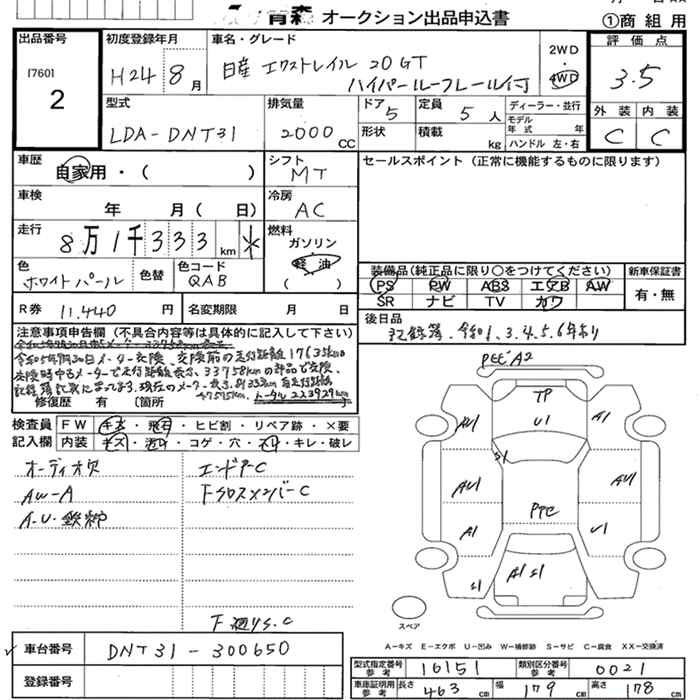 青森 オークション出品申込書
①商 組 用
出品番号
17601
2
初度登録年月
H24 8月
車名・グレード
日産 エクストレイル 20GT
ハイパールーフレール付
2WD
・
4WD
評 価 点
3.5
外 装 内 装
C C
型式
LDA-DNT31
排気量
2000 CC
ドア 5
形状
定員 5 人
積載 kg
ディーラー・並行
モデル年式 年
ハンドル 左・右
車歴
自家用・( )
シフト
MT
セールスポイント (正常に機能するものに限ります)
車検
年 月( 日)
冷房
AC
走行
8万1千333km
燃料
ガソリン
軽油
( )
色
ホワイトパール
色替
色コード
QAB
装備品(純正品に限り○をつけてください)
PS PW ABS エアB AW
SR ナビ TV カワ
新車保証書
有・無
R券 11,440 円
名変期限 月 日
後日品
記録簿、令和1、3、4、5、6年あり
注意事項申告欄 (不具合内容等は具体的に記入して下さい)
令和5年9月30日メーター交換、交換前の走行距離17635km
交換時中古メーターで走行距離表示、33758kmの部品で交換、
トータル223929km
修復歴 有 〔箇所
検査員
記入欄
FW キズ・飛石・ヒビ割・リペア跡・×要
内装 キズ・汚れ・コゲ・穴・スレ・キレ・破レ
オーディオ欠
AW-A
A・U・鉄神
エンドア-C
Fクロスメンバー-C
F廻りS、C
PタレA2
TP
U1
AU1
A1
S1
AU1
AU1
Pタレ
A1
U1
S1
A1 S1
スペア
A-キズ E-エクボ U-凹み W-補修跡 S-サビ C-腐食 XX-交換済
車台番号
DNT31-300650
登録番号
型式指定番号
参考
16151
類別区分番号
参考
0021
車庫証明用
参考
長さ 463 cm 幅 179 cm 高さ 178 cm